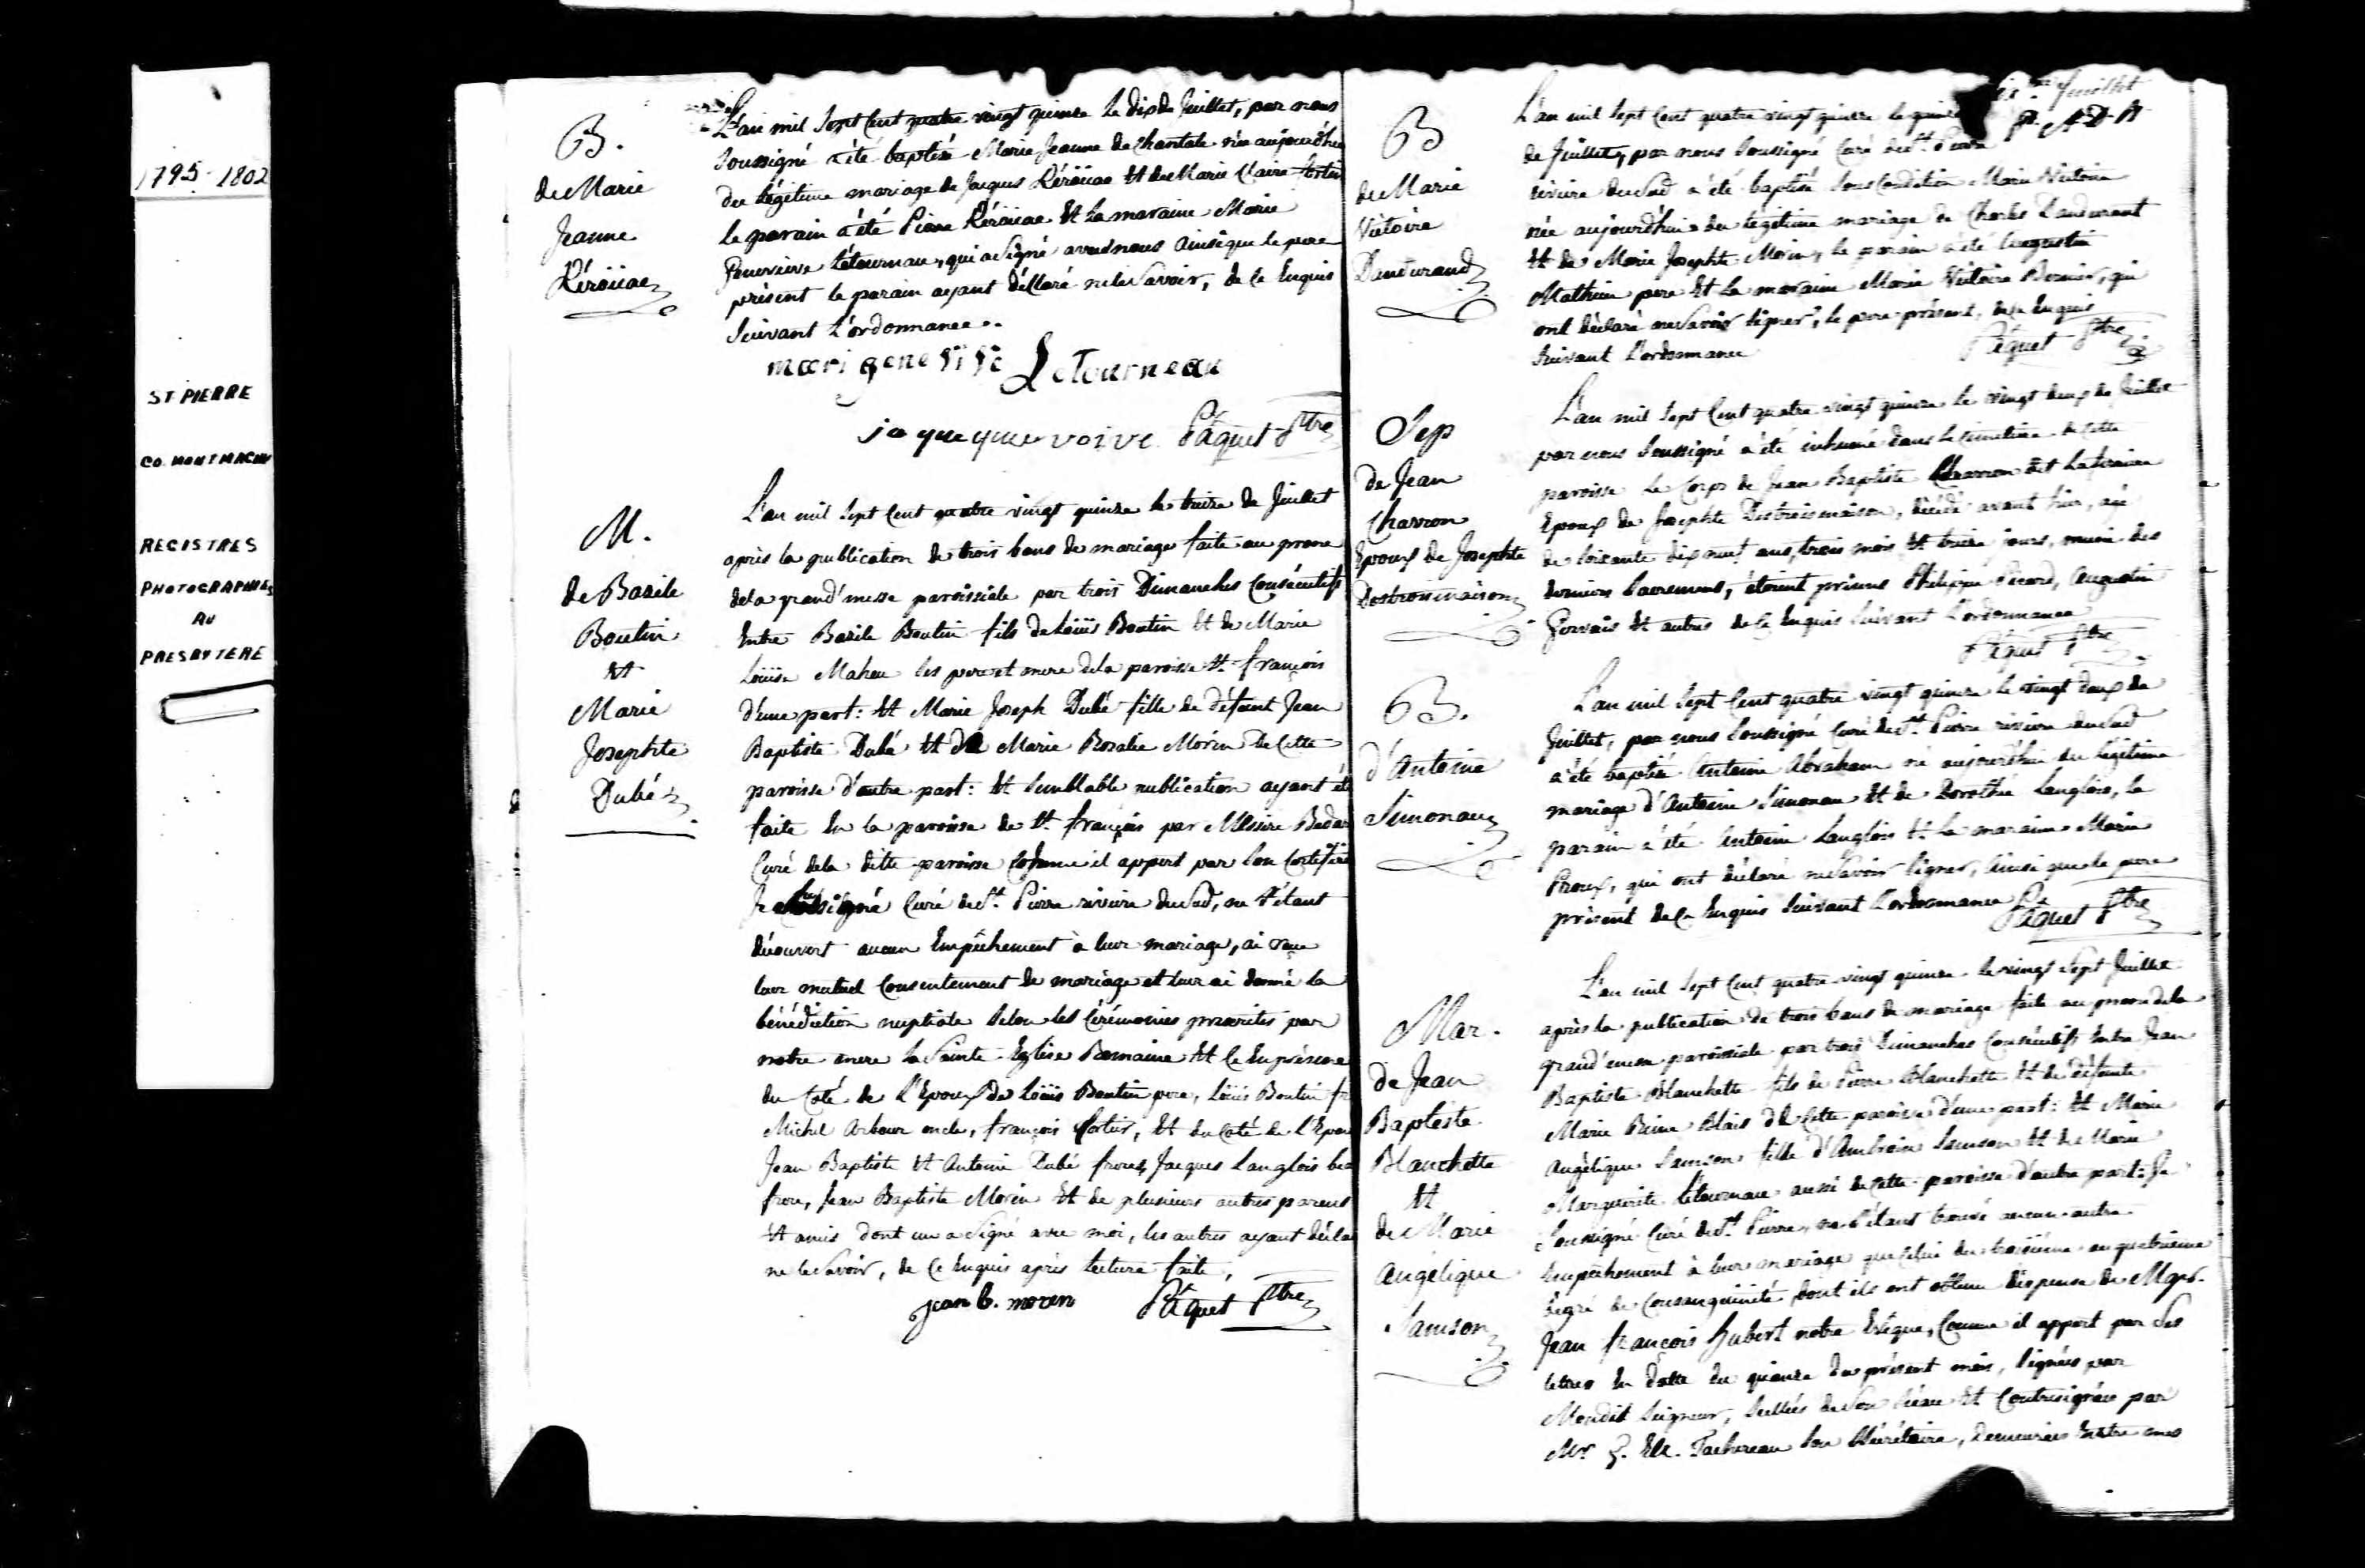 1795-1802
ST PIERRE
CO. MONTMAGNY
REGISTRES
PHOTOGRAPHIES
AU
PRESBYTERE
B.
de Marie
Jeanne
Kéroüac
L'an mil Sept Cent quatre vingt quinze le dix de Juillet, par nous
soussigné a été baptisé Marie Jeanne de Chantale née aujourd'hui
du légitime mariage de Jacques Kéroüac Et de Marie Claire fortin
le parain a été Pierre Kéroüac Et la maraine Marie
Genevieve Létournau, qui a signé avec nous ainsique le pere
présent le parain ayant déclaré ne le savoir, de ce Enquis
Suivant L'ordonnance..
mari Letourneau
Pâquet Ptre
M.
de Basile
Boutin
Et
Marie
Josephte
Dubé
L'an mil Sept Cent quatre vingt quinze le treize de Juillet
après la publication de trois bans de mariage faite au prone
de la grand'messe paroissiale par trois Dimanches Consécutifs
Entre Basile Boutin fils de Loüis Boutin Et de Marie
Loüise Maheu ses pere et mere de la paroisse St. françois
d'une part: Et Marie Joseph Dubé fille de défunt Jean
Baptiste Dubé Et de Marie Rosalie Morin de Cette
paroisse d'autre part: Et Semblable publication ayant été
faite En la paroisse de St. françois par Messire Bedar
Curé de la ditte paroisse Comme il appert par Son Certificat
Je Soussigné Curé de St. Pierre riviere du Sud, ne s'étant
découvert aucun Empêchement à leur mariage, ai reçu
leur mutuel Consentement de mariage et leur ai donné la
bénédiction nuptiale Selon les Cérémonies prescrites par
notre mere la Sainte Eglise Romaine Et Ce En présence
du Coté de l'Epoux de Loüis Boutin pere, Loüis Boutin fr
Michel Arbour oncle, françois Cortier, Et du Coté de l'Epou
Jean Baptiste Et Antoine Dubé freres, Jacques Langlois bea
frere, Jean Baptiste Morin Et de plusieurs autres parens
Et amis dont un a Signé avec moi, les autres ayant décla
ne le Savoir, de Ce Enquis après lecture faite,
jean b. moren Pâquet Ptre
Juillet
B
de Marie
Victoire
Dandurand
L'an mil Sept Cent quatre vingt quinze le quinze
de Juillet, par nous Soussigné Curé de St. Pierre
riviere du Sud a été baptisé Sous Condition Marie Victoire
née aujourd'hui du légitime mariage de Charles Dandurant
Et de Marie Josephte Morin, le parain a été Augustin
Mathieu pere Et la maraine Marie Victoire Bernier, qui
ont déclaré ne Savoir signer, le pere présent, de Ce Enquis
Suivant L'ordonnance Pâquet Ptre
Sep
de Jean
Charron
Epoux de Josephte
Destroismaisons
L'an mil Sept Cent quatre vingt quinze le vingt deux de Juillet
par nous Soussigné a été inhumé dans le Cimetiere de Cette
paroisse le Corps de Jean Baptiste Charron dit
Epoux de Josephte Destroismaisons, décédé avant hier, agé
de Soixante dix neuf ans, trois mois Et treize jours, muni des
derniers Sacremens, étoient présens Philippe Picard, Augustin
Gervais Et autres de Ce Enquis Suivant l'ordonnance
Pâquet Ptre
B.
d'Antoine
Simoneau
L'an mil Sept Cent quatre vingt quinze le vingt deux de
Juillet, par nous Soussigné Curé de St. Pierre riviere du Sud
a été baptisé Antoine Abraham né aujourd'hui du légitime
mariage d'Antoine Simonau Et de Dorothée Langlois, le
parain a été Antoine Langlois Et la maraine Marie
Proux, qui ont déclaré ne Savoir Signer, Ainsi que le pere
présent de Ce Enquis Suivant l'ordonnance
Pâquet Ptre
Mar.
de Jean
Baptiste
Blanchette
Et
de Marie
Angélique
Samson
L'an mil Sept Cent quatre vingt quinze le vingt Sept Juillet
après la publication de trois bans de mariage faite au prone de la
grand'messe paroissiale par trois Dimanches Consécutifs Entre Jean
Baptiste Blanchette fils de Pierre Blanchette Et de défunte
Marie Reine Blais de Cette paroisse d'une part: Et Marie
Angélique Samson fille d'Ambroise Samson Et de Marie
Marguerite Létournau aussi de Cette paroisse d'autre part: Je
Soussigné Curé de St. Pierre, ne S'étant trouvé aucun autre
Empêchement à leur mariage que Celui du troisième au quatrieme
dégré de Consanguinité, dont ils ont obtenu dispense de Mgr.
Jean françois hubert notre Evêque, Comme il appert par Ses
lettres En datte du quinze du présent mois, Signées par
Mondit Seigneur, Scellées de Son Sceau Et Contresignées par
Mr. Tachereau Son Sécrétaire, demeurées Entre mes